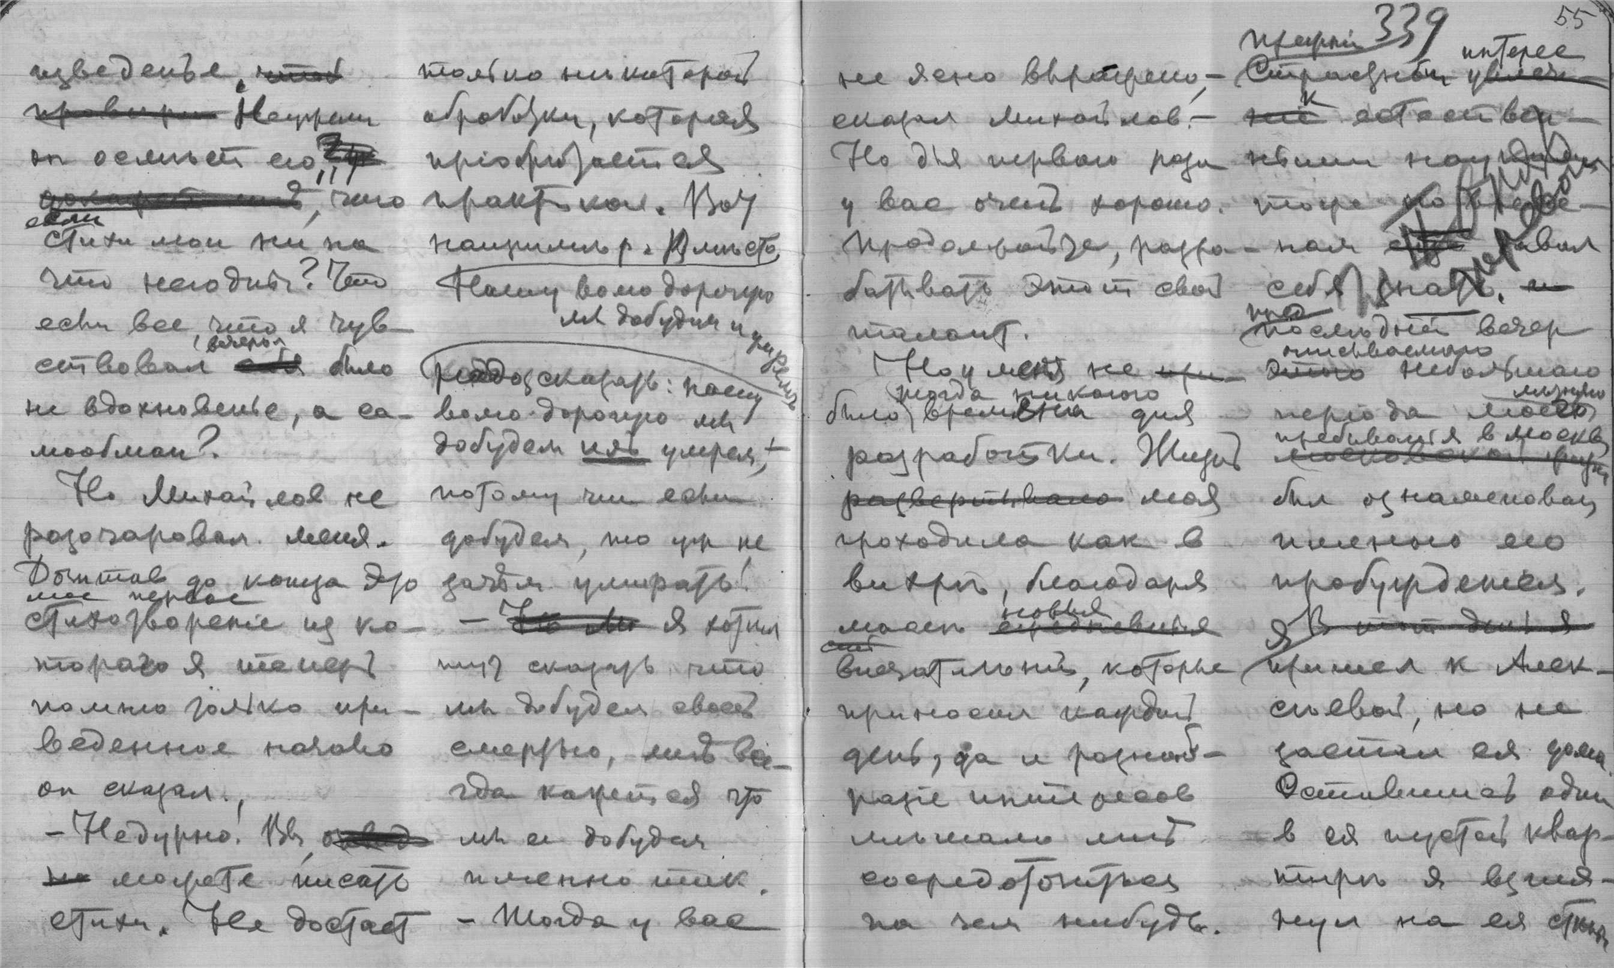 изведенье,
Неужели
он осмеет его,
, что
если
стихи мои ни на
что негодны? Что
если все что я чув-
ствовал вечером было
не вдохновенье, а са-
мообман?
Но Михайлов не
разочаровал меня.
Дочитав до конца это
мое первое
стихотворение из ко-
тораго я теперь
помню только при-
веденное начало
он сказал:
– Недурно! Вы
можете писать
стихи. Не достает
только некоторой
обработки, которая
приобретается
практикой. Вот
например. Вместо
Нашу волю дорогую
мы добудем и умремъ
надо сказать: нашу
волю дорогую мы
добудем иль умрем,
потому что если
добудем, то уж не
зачем умирать!
– Но мы я хотел
сказать что
мы добудем своей
смертью, мне все-
гда кажется что
мы ее добудем
именно так.
– Тогда у вас
не ясно выражено, –
сказал Михайлов. –
Но для первого раза
у вас очень хорошо.
Продолжайте, разра-
батывать этот свой
талант.
Но у меня не
было тогда никакого
времени для
разработки. Жизнь
развертывала моя
проходила как в
вихре, благодаря
массе новых
впечатлений, которые
приносил каждый
день, да и разнооб-
разие интересов
мешало мне
сосредоточиться
на чем нибудь.
339
55
прежний
Страстный интерес
к естествен-
ным наукам
тоже по време-
нам давал
себя знать.
последний вечер
описываемого
этого небольшого
периода моего
пребывания в Москве
московской жизни
был ознаменован
именно его
пробуждением.
Я В тот день я
пришел к Алек-
сеевой, но не
застал ея дома.
Оставшись один
в ея пустой квар-
тире я взгля-
нул на ея столъ